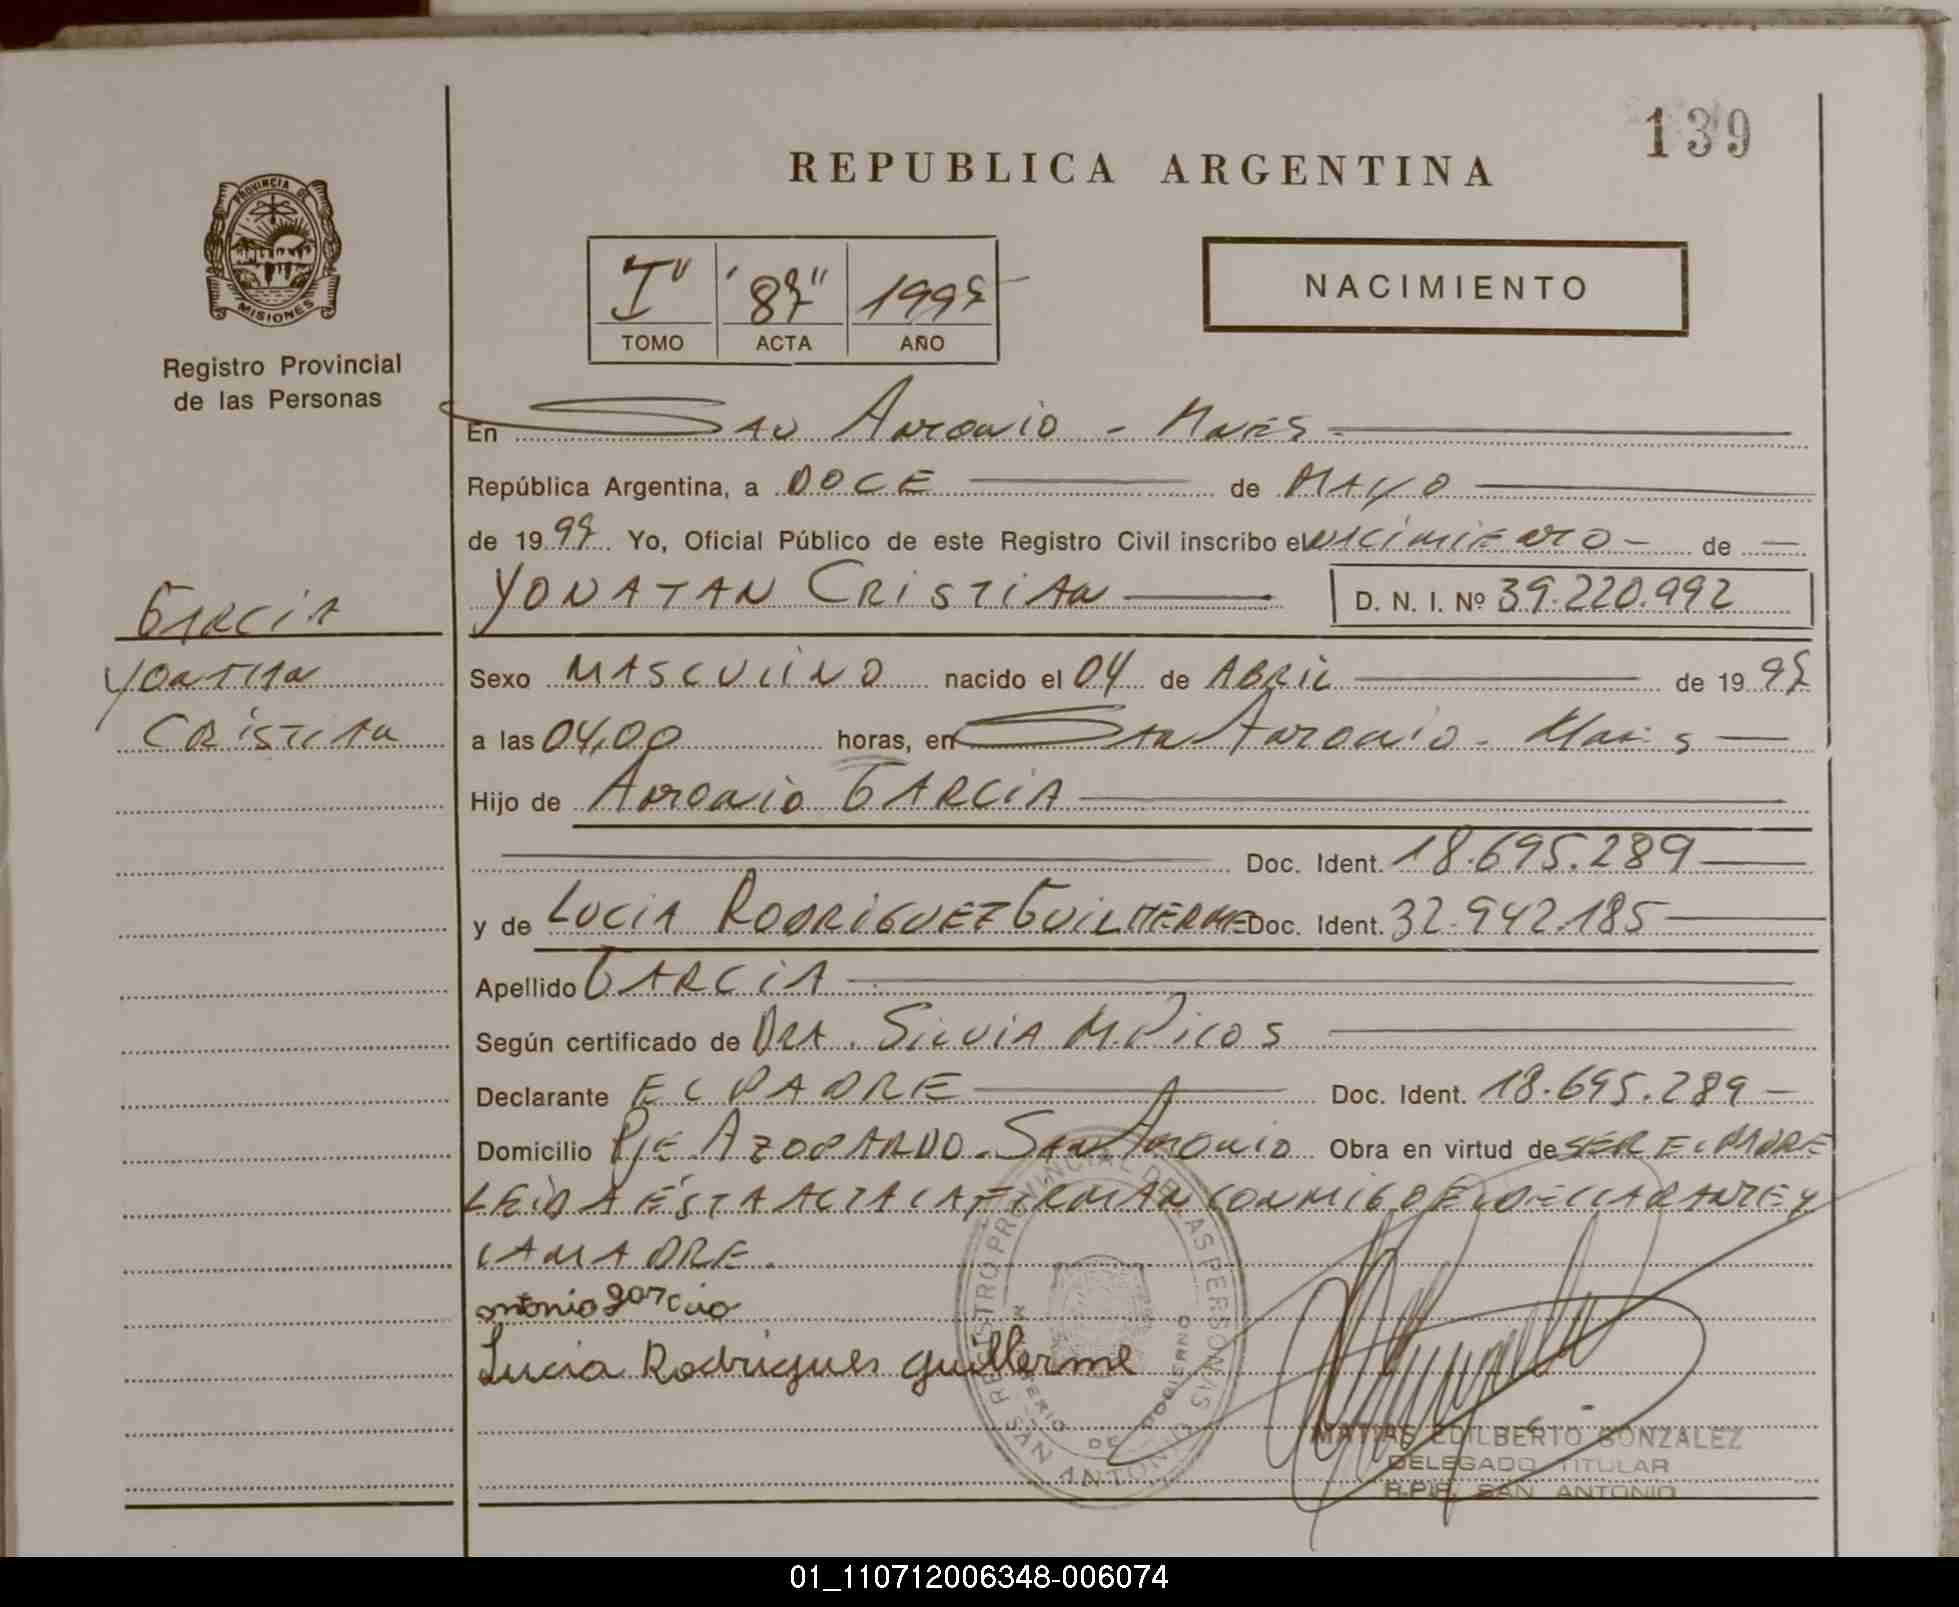 139
REPUBLICA ARGENTINA
PROVINCIA DE
MISIONES
Registro Provincial
de las Personas
TOMO ACTA AÑO
NACIMIENTO
En San Antonio - Mnes -
República Argentina, a DOCE de MAYO
de 19 Yo, Oficial Público de este Registro Civil inscribo el nacimiento - de
YONATAN CRISTIAN D. N. I. Nº 39.220.992
GARCIA
YONATAN
CRISTIAN
Sexo MASCULINO nacido el 04 de ABRIL de 19
a las 04,00 horas, en San Antonio - Mnes
Hijo de Antonio GARCIA
Doc. Ident. 18.695.289
y de LUCIA RODRIGUEZ GUILHERME Doc. Ident. 32.942.185
Apellido GARCIA
Según certificado de DRA. SILVIA M. PICOS
Declarante EL PADRE Doc. Ident. 18.695.289 -
Domicilio PJE AZOPARDO - San Antonio Obra en virtud de SER EL PADRE
LEIDA ÉSTA ACTA LA FIRMAN CONMIGO EL DECLARANTE Y
LA MADRE.
antonio garcia
Lucia Rodrigues guillerme
REGISTRO PROVINCIAL DE LAS PERSONAS
SAN ANTONIO
MATIAS EDILBERTO GONZALEZ
DELEGADO TITULAR
R.P.P. SAN ANTONIO
01_110712006348-006074